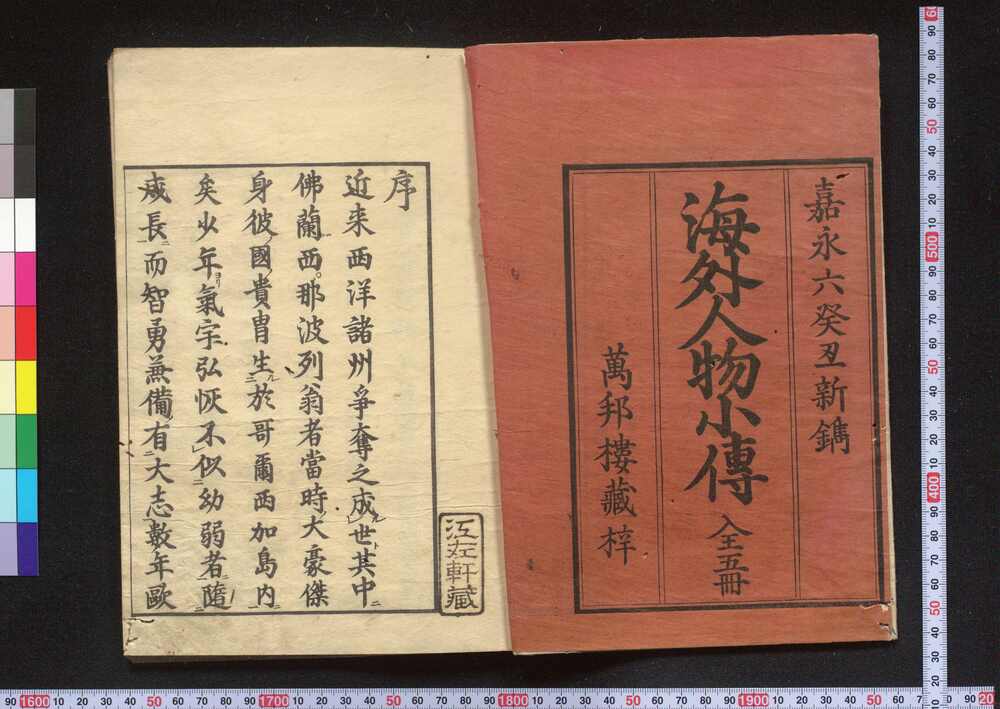 嘉永六癸丑新鐫
海外人物小傳 全五冊
萬邦樓藏梓
序
近来西洋諸州爭奪之成世其中
佛蘭西那波列翁者當時大豪傑
身彼國貴冑生於哥爾西加島内
矣少年氣宇弘恢不似幼弱者隨
成長而智勇兼備有大志數年歐
江左軒藏